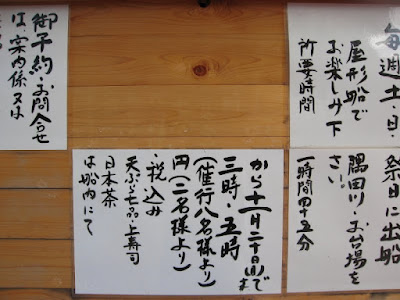 毎週土・日・
屋形船で
お楽しみ下
所要時間
祭日に出船
隅田川・お台場を
さい。
一時間四十五分
から十一月二十日まで
三時・五時
(催行八名様より)
円(二名様より)
・税込み
天ぷら七品・上寿司
日本茶
は船内にて
御予約・お問合せ
は、案内係又は